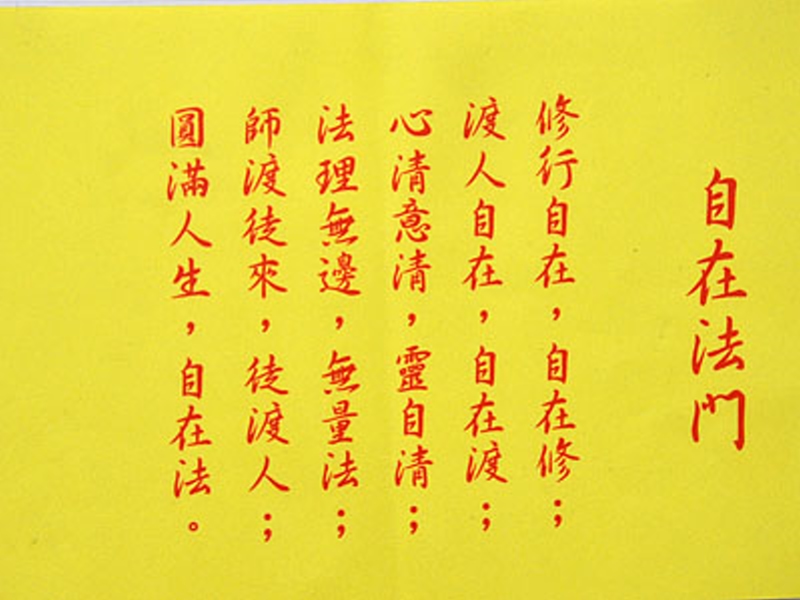 自在法門
修行自在，自在修；
渡人自在，自在渡；
心清意清，靈自清；
法理無邊，無量法；
師渡徒來，徒渡人；
圓滿人生，自在法。